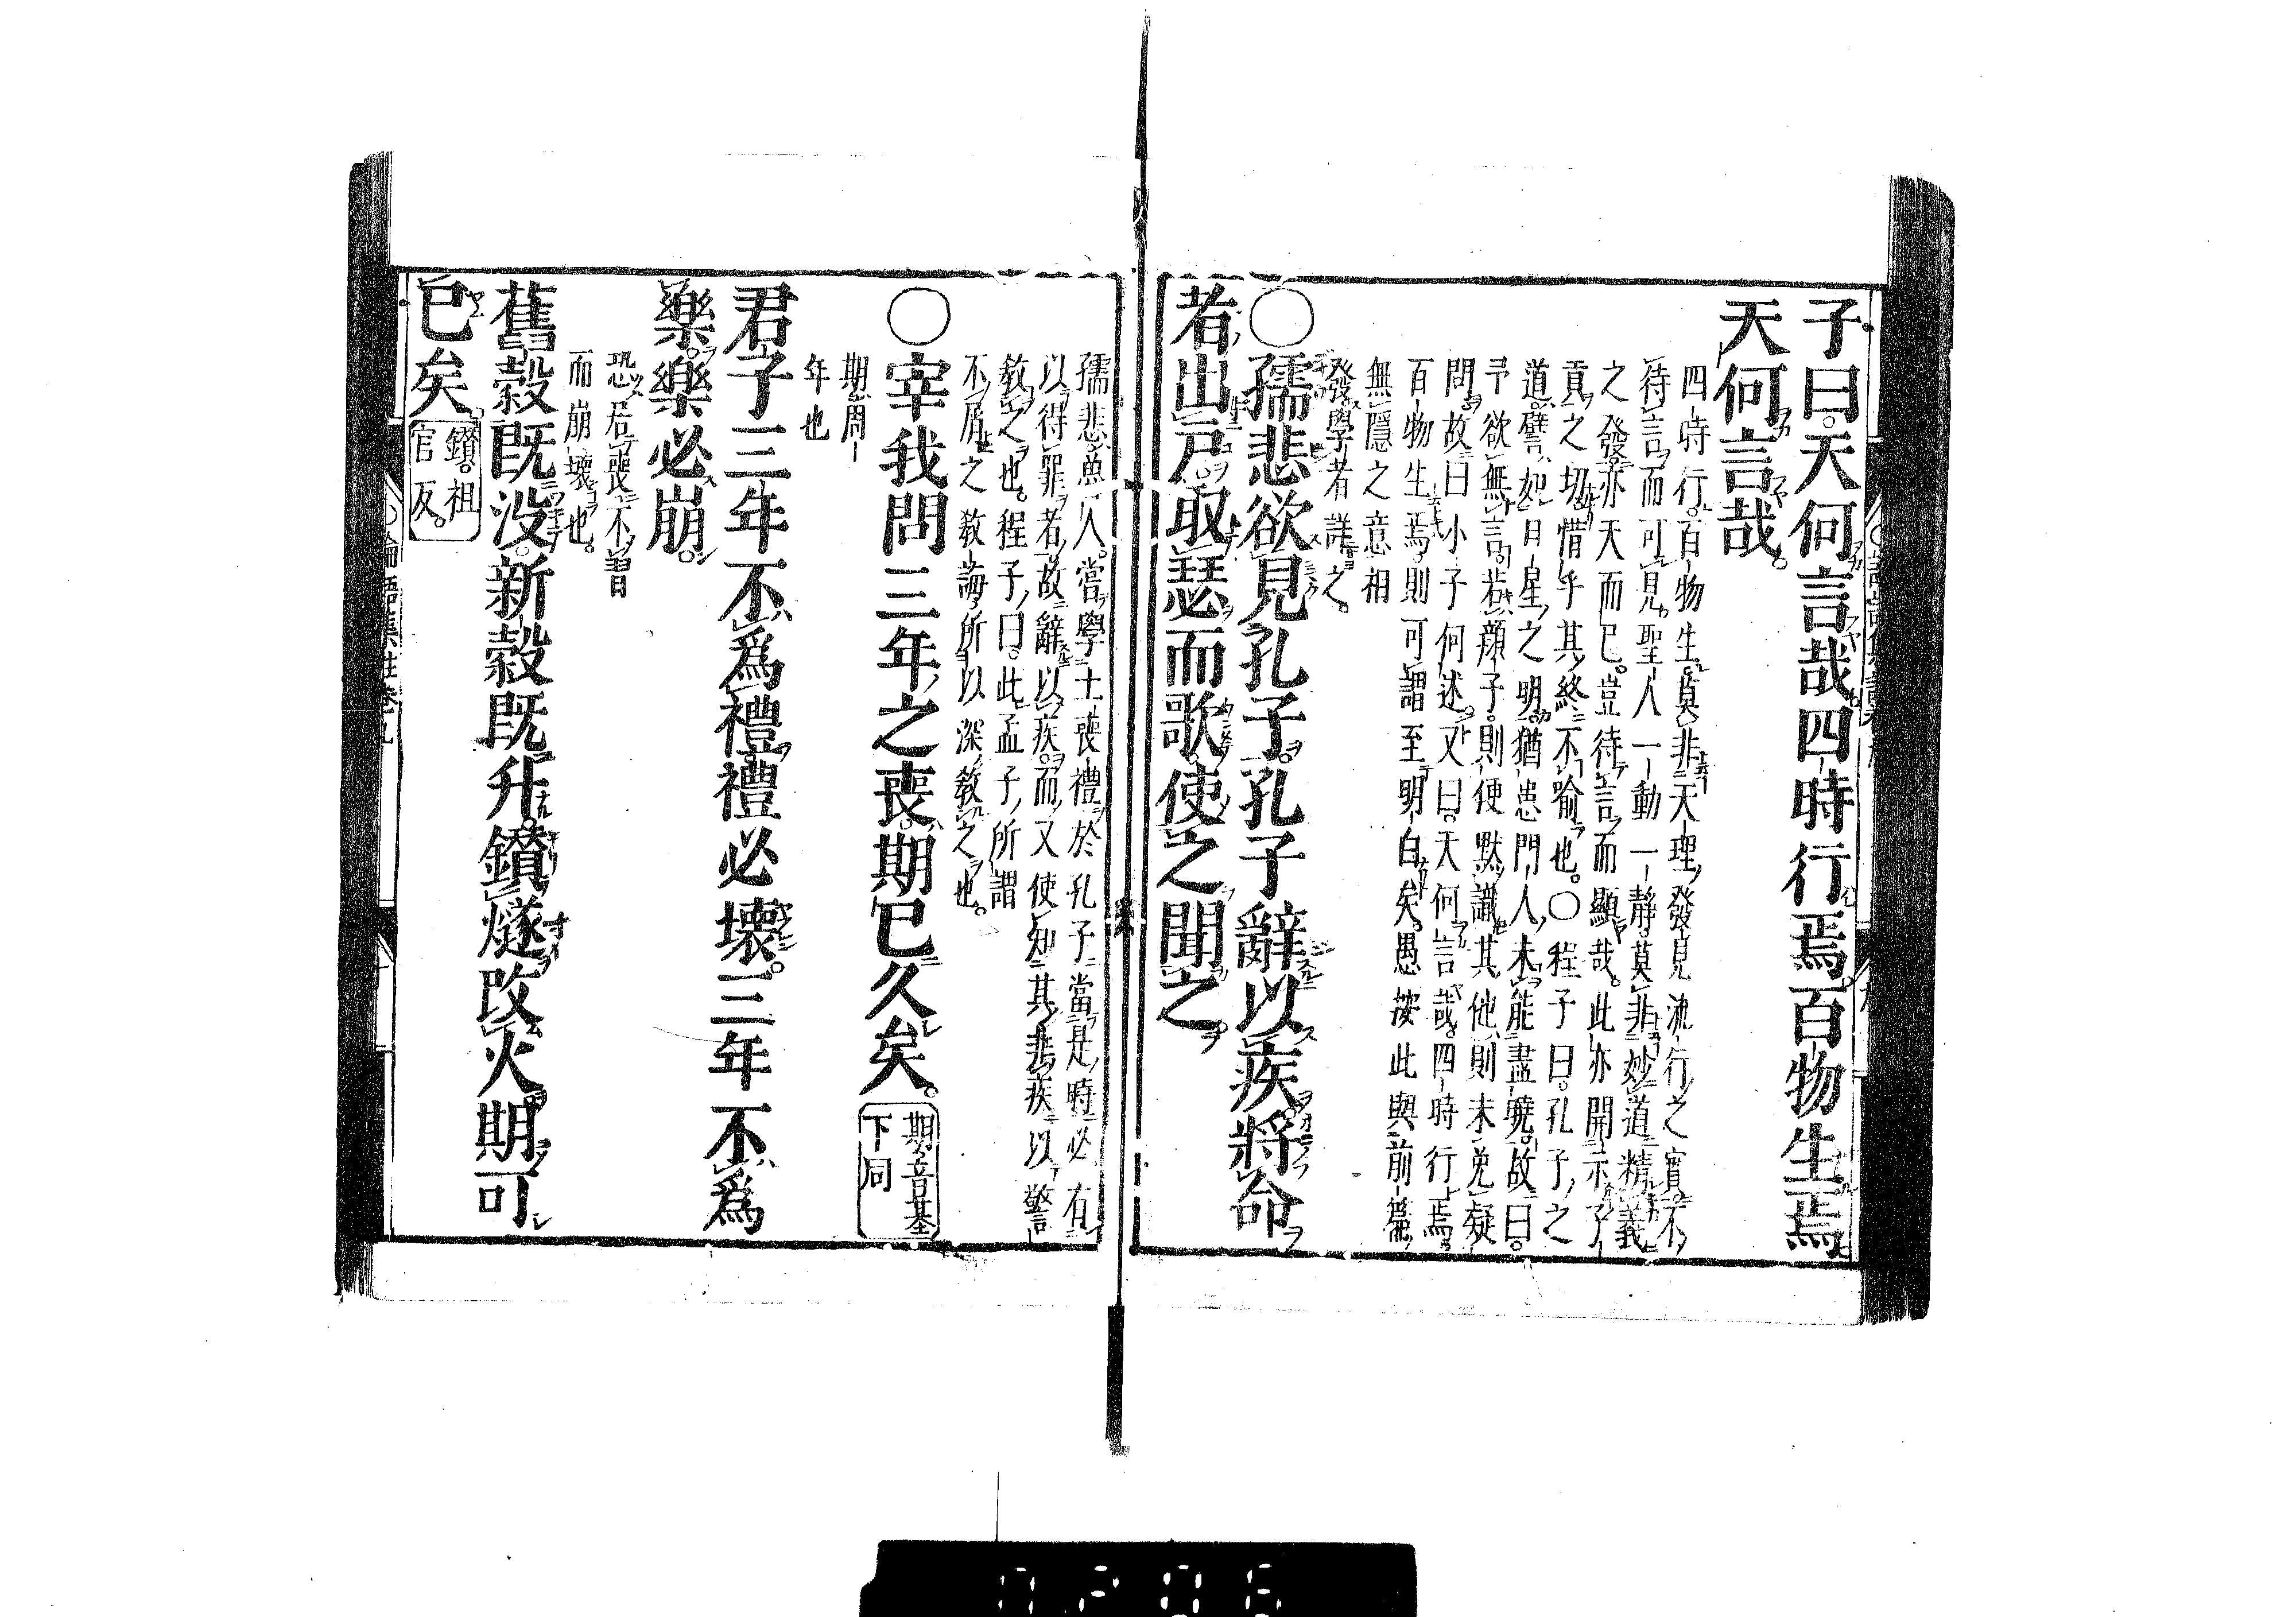 子曰。天何言哉四時行焉。百物生焉
天何言哉。
四時行。百物生。莫非天理發見流行之實。不
待言而可見。聖人一動一靜。莫非妙道精義
之發。亦天而已。豈待言而顯哉。此亦開示子
貢之切。惜乎其終不喻也。○程子曰。孔子之
道。譬如日星之明。猶患門人未能盡曉。故曰。
予欲無言。若顏子。則便默識。其他則未免疑
問。故曰小子何述。又曰。天何言哉。四時行焉。
百物生焉。則可謂至明白矣。愚按此與前篇
無隱之意相
發學者詳之。
○孺悲欲見孔子。孔子辭以疾。將命
者出戶。取瑟而歌。使之聞之。
孺悲魯人。嘗學士喪禮於孔子。當是時必有
以得罪者。故辭以疾。而又使知其非疾以警
敎之也。程子曰。此孟子所謂
不屑之敎誨所以深敎之也。
○宰我問三年之喪。期已久矣。期音基下同
期周
年也
君子三年不爲禮禮必壞。三年不爲
樂。樂必崩。
恐居喪不習
而崩壞也。
舊穀既没。新穀既升。鑽燧改火。期可
已矣。鑽。祖官反。
論語集註卷九